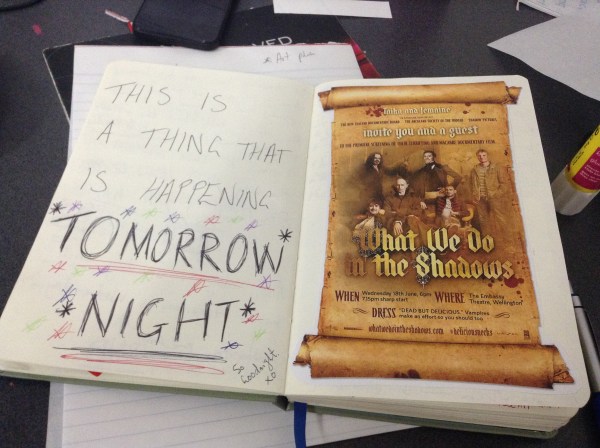 * Art
THIS IS
A THING THAT
IS HAPPENING
TOMORROW*
*NIGHT*
So
Goodnight
xo
Taika and Jemaine
invite you and a guest
What We Do
in the Shadows
WHEN Wednesday 18th June, 6pm WHERE The Embassy
7.15pm sharp start Theatre, Wellington
DRESS "DEAD BUT DELICIOUS." Vampires
make an effort so you should too
whatwedointheshadows.com #deliciousnecks